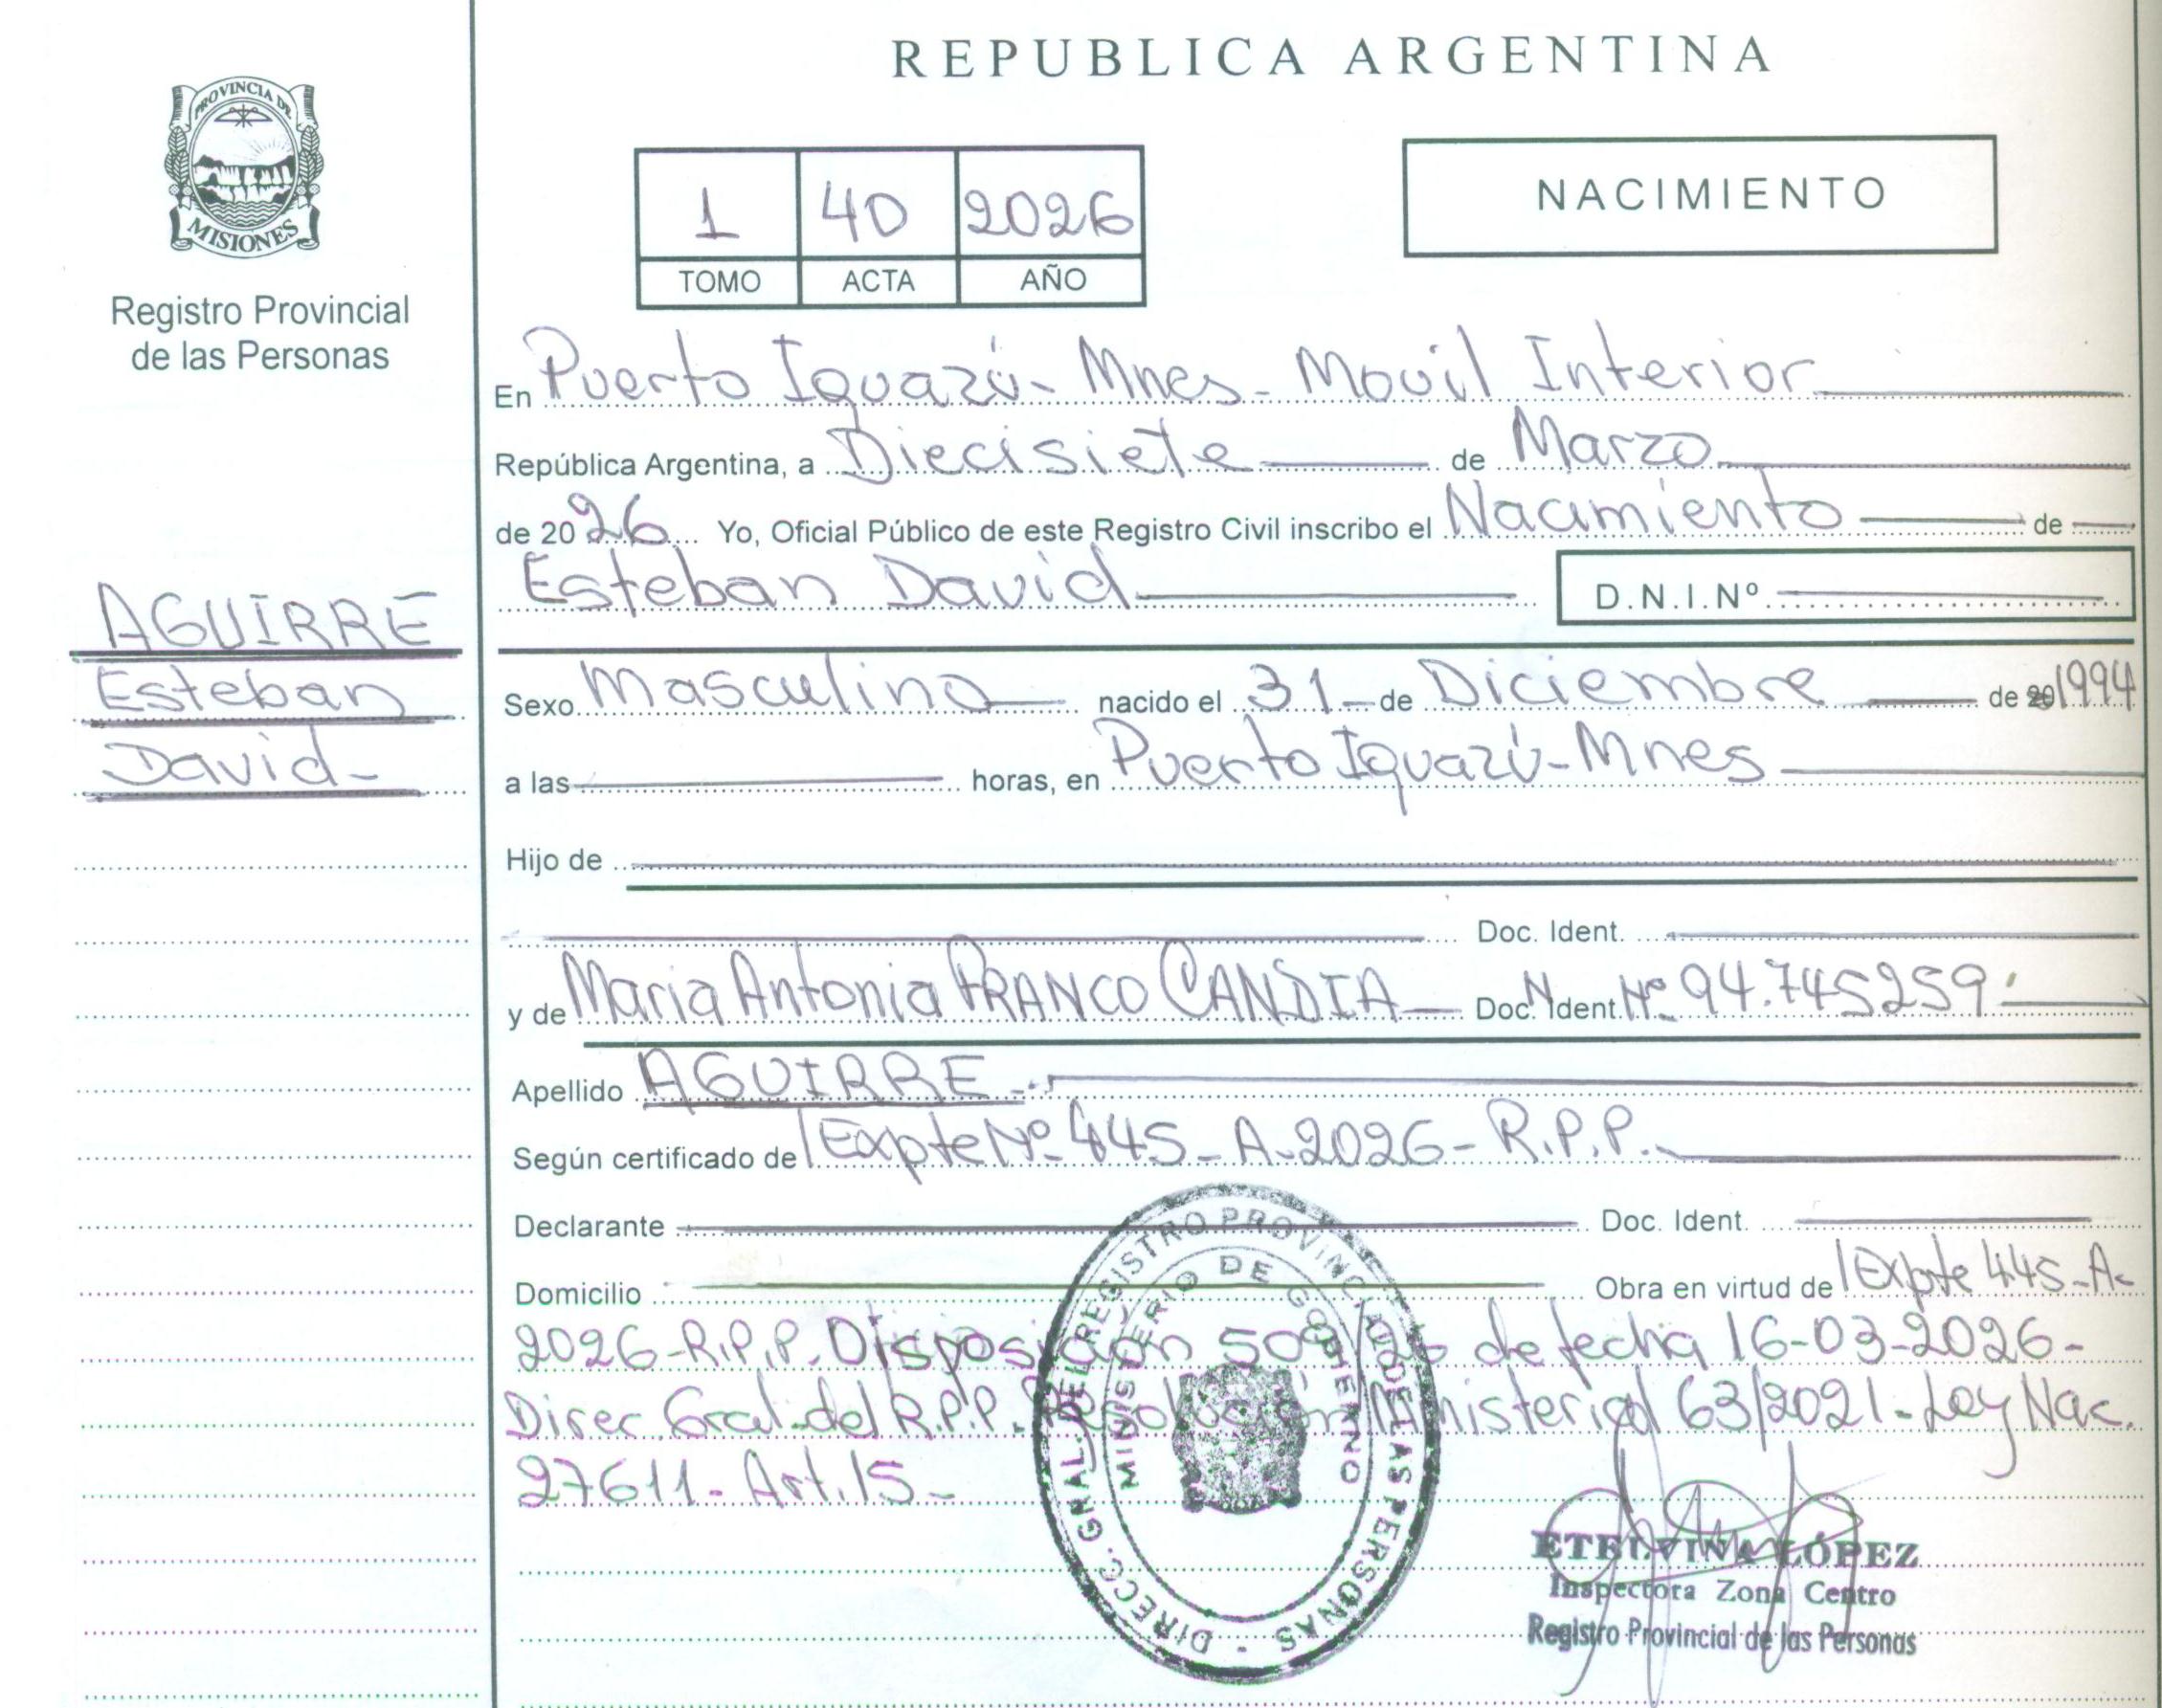 REPUBLICA ARGENTINA
PROVINCIA DE
MISIONES
Registro Provincial
de las Personas
1 40 2026
TOMO ACTA AÑO
NACIMIENTO
En Puerto Iguazú - Mnes - Movil Interior
República Argentina, a Diecisiete de Marzo
de 2026 Yo, Oficial Público de este Registro Civil inscribo el Nacimiento de
Esteban David D.N.I.Nº
AGUIRRE
Esteban
David-
Sexo Masculino nacido el 31 - de Diciembre de 20 1994
a las horas, en Puerto Iguazú - Mnes
Hijo de
Doc. Ident.
y de Maria Antonia FRANCO CANDIA Doc. Ident. Nº 94.745259
Apellido AGUIRRE
Según certificado de Expte Nº 445-A-2026-R.P.P.
Declarante Doc. Ident.
Domicilio Obra en virtud de Expte 445-A-
2026-R.P.P. Disposición de fecha 16-03-2026-
Direc. Gral. del R.P.P. Resolución Ministerial 63/2021 - Ley Nac.
27611 - Art. 15 -
DIRECC. GRAL. DEL REGISTRO PROVINCIAL DE LAS PERSONAS -
MINISTERIO DE GOBIERNO
ETELVINA LÓPEZ
Inspectora Zona Centro
Registro Provincial de las Personas